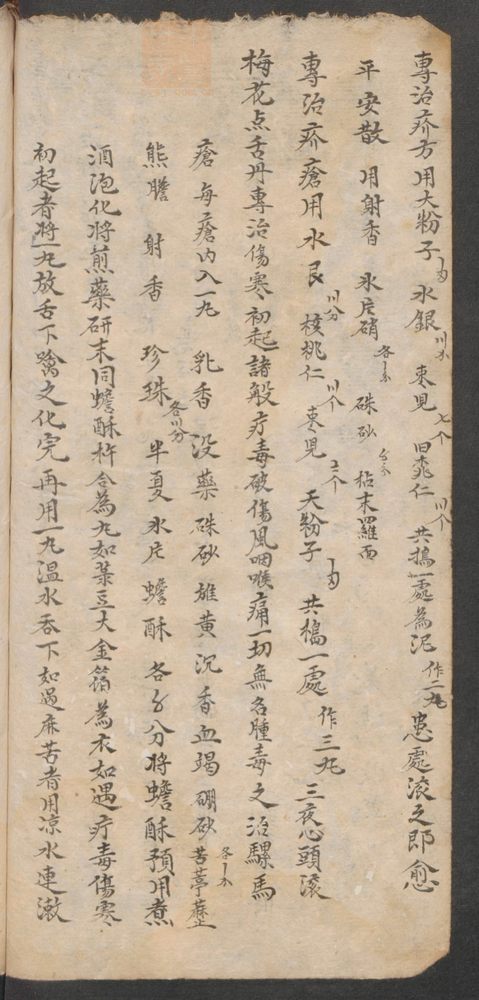 專治疥方用大粉子 水銀 棗児 七个 田桃仁 川个 共搗一處為泥 作二丸 患處滚之即愈
平安散 用射香 氷片硝 各 硃砂 枯末羅面
專治疥瘡用水艮 川分 核桃仁 川个 棗児 三个 天粉子 共搗一處 作三丸 三夜心頭滚
梅花点舌丹專治傷寒初起諸般疔毒破傷風咽喉痛一切無名腫毒之治騾馬
瘡每瘡内入一丸 乳香 没藥 硃砂 雄黄 沉香血竭 硼砂 苦葶藶 各
熊膽 射香 珍珠 各川分 半夏 氷片 蟾酥 各分將蟾酥預用煮
酒泡化將煎藥研末同蟾酥杵合為丸如菉豆大金箔為衣如遇疔毒傷寒
初起者將一丸放舌下噙之化完再用一丸温水吞下如過麻苦者用凉水連漱